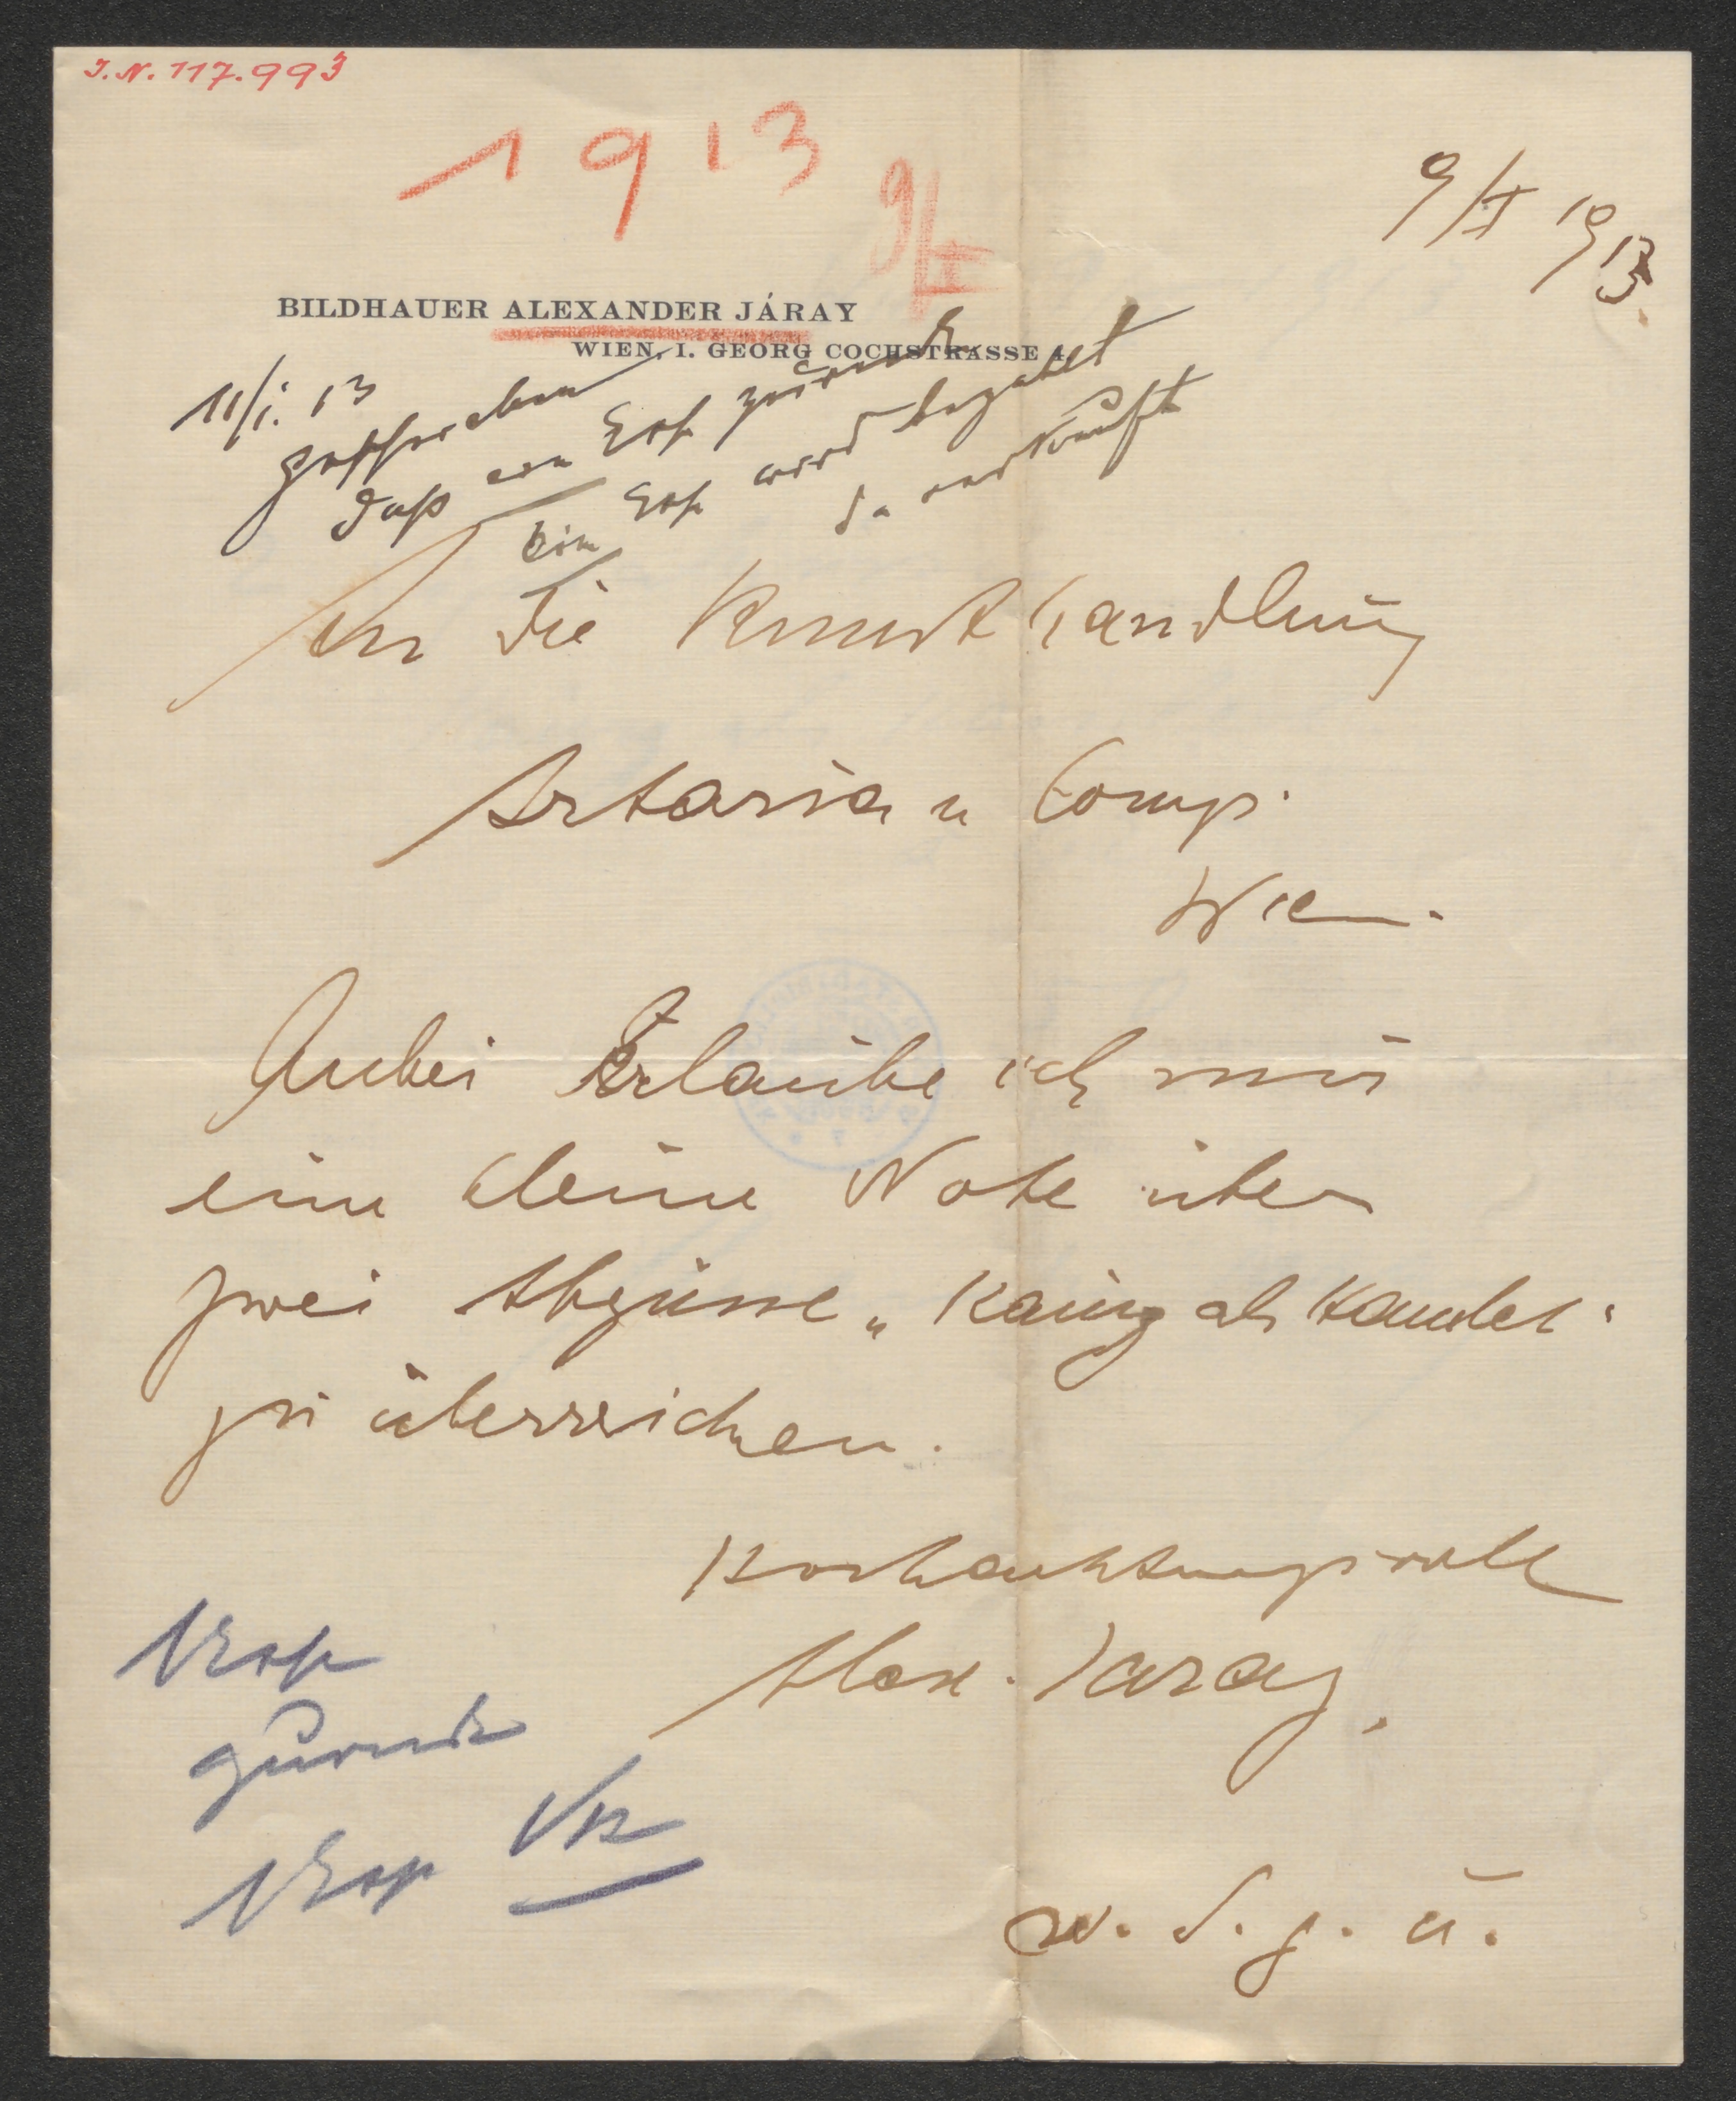 I.N. 117.993
1913
9/I
9/I 1913.
BILDHAUER ALEXANDER JÁRAY
WIEN, I. GEORG COCHSTRASSE 4
11/i. 13
geschrieben
daß ein Ex zurück
ein Ex wird bezahlt
da verkauft
An die Kunsthandlung
Artaria u Comp.
Wien.
Anbei Erlaube ich mir
eine kleine Note über
zwei Abgüsse „Kainz als Hamlet“
zu überreichen.
Hochachtungsvoll
Alex. Jaray.
zurück
w. S. g. ü.